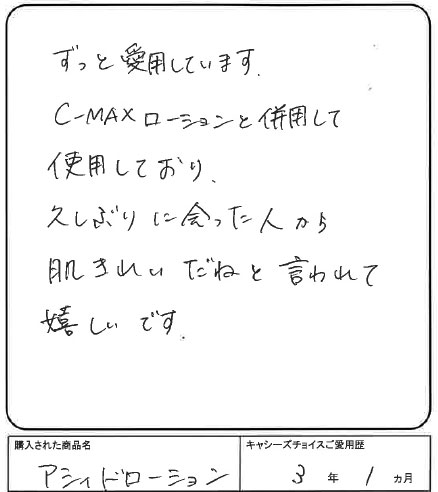 ずっと愛用しています.
C-MAXローションと併用して
使用しており、
久しぶりに会った人から
肌きれいだねと言われて
嬉しいです.
購入された商品名
アシィドローション
キャシーズチョイスご愛用歴
3年1ヵ月